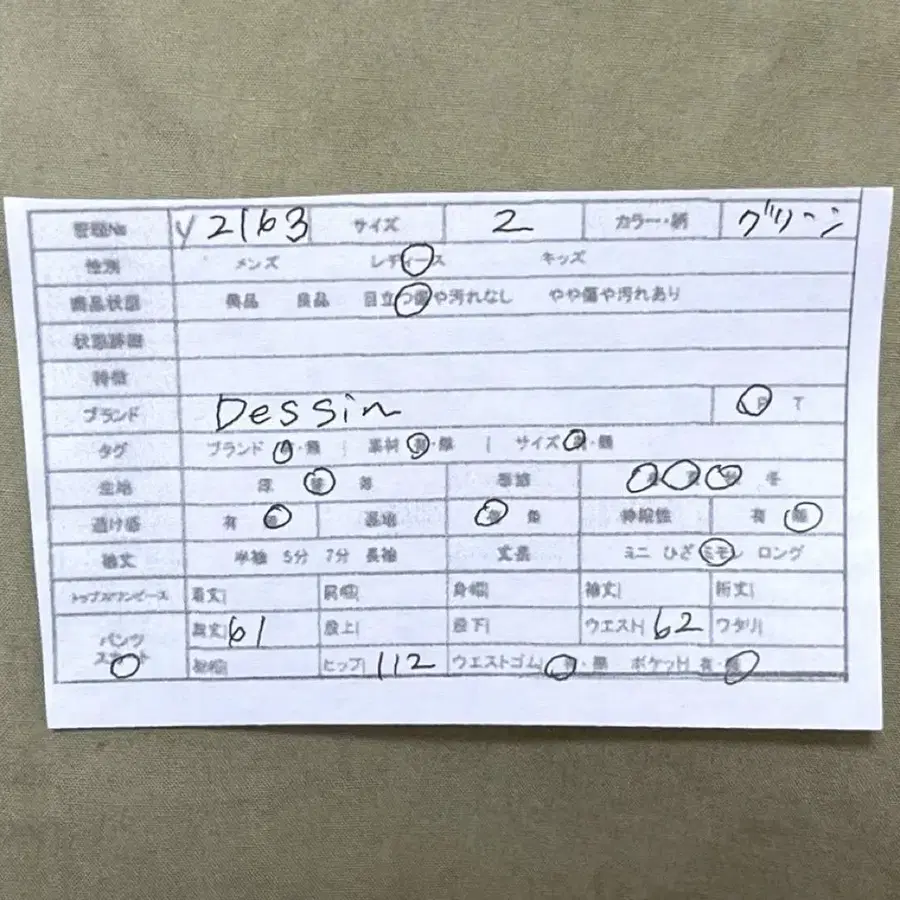 管理No y2163 サイズ 2 カラー・柄 グリーン
性別 メンズ レディース キッズ
商品状態 美品 良品 目立つ傷や汚れなし やや傷や汚れあり
状態詳細
特徴
ブランド Dessin P T
タグ ブランド 有・無 | 素材 有・無 | サイズ 有・無
生地 厚 普 薄 季節 春 夏 秋 冬
透け感 有 無 裏地 有 無 伸縮性 有 無
袖丈 半袖 5分 7分 長袖 丈長 ミニ ひざ ミモレ ロング
トップス/ワンピース 着丈| 肩幅| 身幅| 袖丈| 裄丈|
パンツ 総丈| 61 股上| 股下| ウエスト| 62 ワタリ|
スカート 裾幅| ヒップ| 112 ウエストゴム| 有・無 ポケット| 有・無